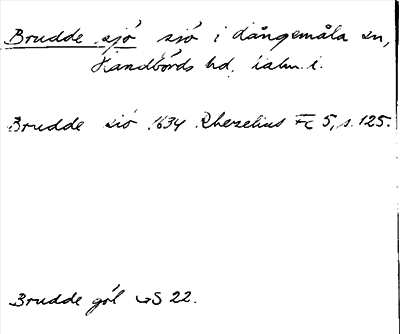 Brudde sjö sjö i Långemåla sn,
Handbörds hd, Kalm. l.
Brudde siö 1634 Rhezelius Fc 5, s. 125.
Brudde göl GS 22.